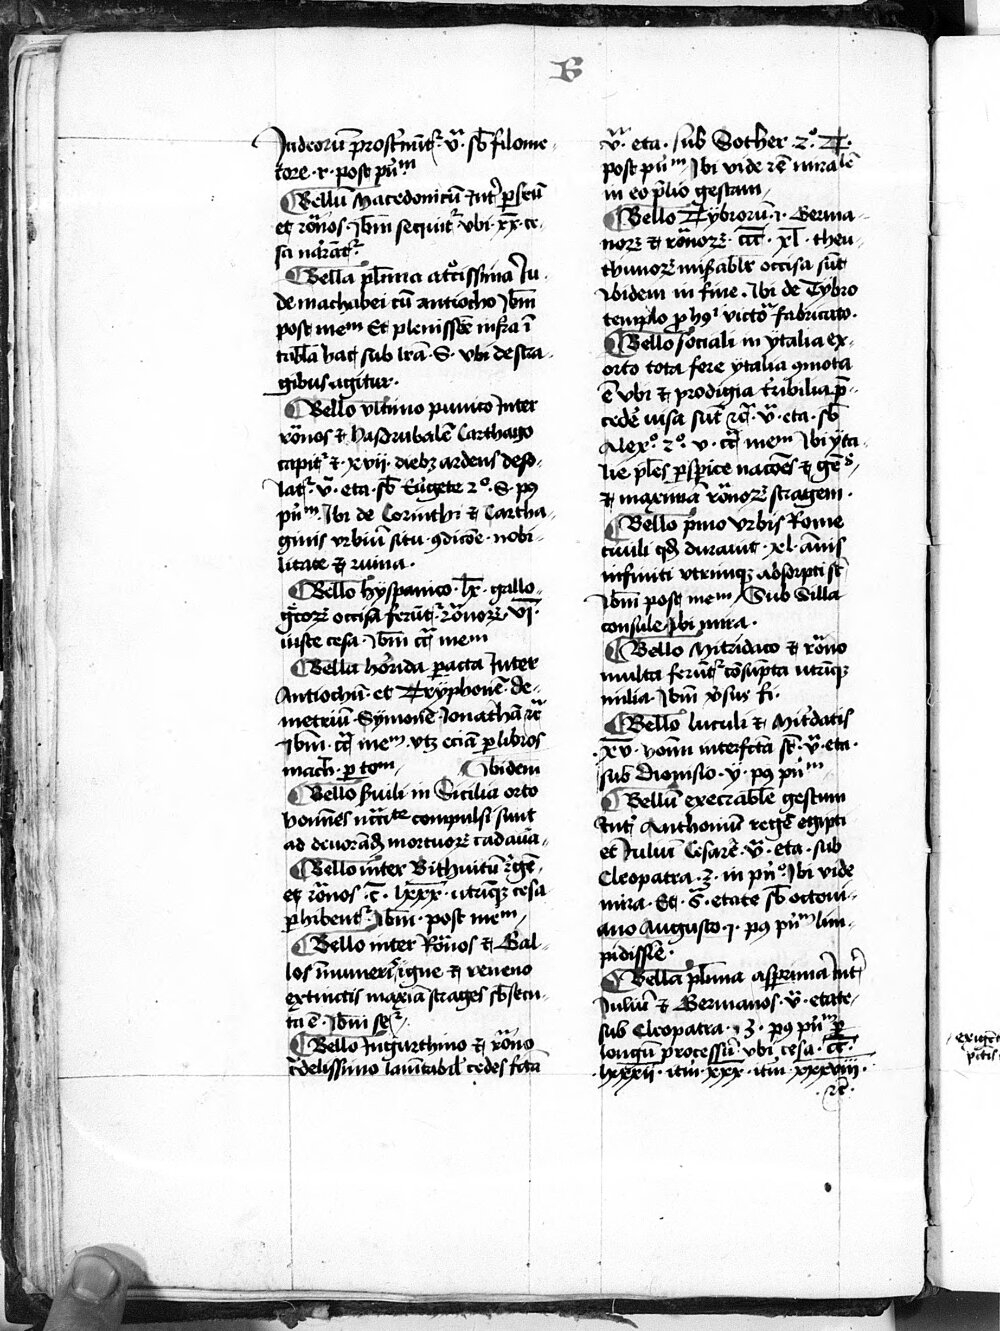 B
Judeorū prost̄nūt᷑ · v̄ · sb̄ filome-
tore · r · post pū᷑ᵐ
Bellū Macedonicū Int᷑ pseū
et rōnos · Ibm̄ sequit᷑ vbi · xx · ce-
sa narāt᷑
Bella plīma attīssima Ju-
de machabei cū antiocho Ibm̄
post meᵐ Et plenissīe infra ī
tabl̄a hac sub lrā · S · vbi de stra-
gibus agitur ·
Bello vltimo punico Inter
rōnos & hasdrubalē Carthago
capit᷑ & · xvii · diebz ardens deso-
lat᷑ · v̄ · eta · sb̄ Eūgete 2° · S · pꝯ
pūᵐ · Ibi de Corinthi & Cartha-
ginis vrbiū situ · ꝯdicōe · nobi-
litate & ruina ·
Bello hyspanico · lx · gallo-
gcorꝝ occisa ferūt᷑ · rōnorꝝ · vi ·
iuste cesa · Ibm̄ cc̄ meᵐ
Bella horrida pacta Inter
Antiochū · et Tryphonē · de-
metriū · Symonē · Jonathā &c̄
Ibm̄ · cc̄ meᵐ · vtz eciā p libros
mach̄ · p toᵐ Ibidem
Bello suili in Sicilia orto
homīes nccīte compulsi sunt
ad deuorand mortuorꝝ cadaūa ·
Bello inter Bithuitū rgē-
et rōnos · c̄ · lxxx · utrīqꝫ cesa
phibent᷑ · Ibm̄ · post meᵐ
Bello inter Rōnos & Gal-
los īnumeri igne & veneno
extinctis maxīa strages sb̄secu-
ta ē · Ibm̄ se᷑
Bello Jugurthino & rōno
cdelissimo lam̄tabil᷑ cedes fc̄ta
v̄ · eta · sub Sother 2° ·
post pūᵐ Ibi vide rē mirabl̄ē
in eo p̄lio gestam
Bello Tybrorū · 1 · Germa-
norꝝ & rōnorꝝ · ccc · xl · theu-
thunorꝝ mīsablr̄ occisa sūt
Ibidem in fine · Ibi de Tybro
templo p hꝯⁱ victōa fabricato ·
Bello sociali in ytalia ex-
orto tota fere ytalia ꝯmota
ē vbi & prodigia t᷑ribilia p̄-
cedē uisa sūt &c̄ · v̄ · eta · sb̄
Alexº · 2º · v · cc̄ meᵐ Ibi yta-
lie pl̄es pspice nacōes & gēs
& maximā rōnorꝝ stragem ·
Bello p̄mo vrbis Rome
ciuili qd durauit · xl · annis
infiniti vtrimqꝫ absorpti st̄
Ibm̄ post meᵐ Sub Silla
consule · Ibi mira ·
Bello Mitridaco & rōno
multa ferūt᷑ cōsūpta utriqꝫ
milia · Ibm̄ v̄sus fi ·
Bello luculi & Mitᵈdatis
· xv · homī interfecta st̄ · v̄ · eta ·
sub Dionisio · y · pꝯ pūᵐ
Bellū execrabile gestum
Int᷑ Anthoniū regē egipti
et Iuliū Cesarē · v̄ · eta · sub
Cleopatra · 3 · in pn᷑º Ibi vide
mira · Et · 6 · etate sb̄ octoui-
ano Augusto · 1 · pꝯ pūᵐ lim-
pidissīe ·
Bella pl̄ima asperima Int᷑
Iuliū & Germanos · v̄ · etate
sub Cleopatra · 3 · pꝯ pūᵐ p
longū processū · vbi cesa · cc̄ ·
lxxxii · itm̄ · xxx · itm̄ · xxxviii ·
· &c̄ ·